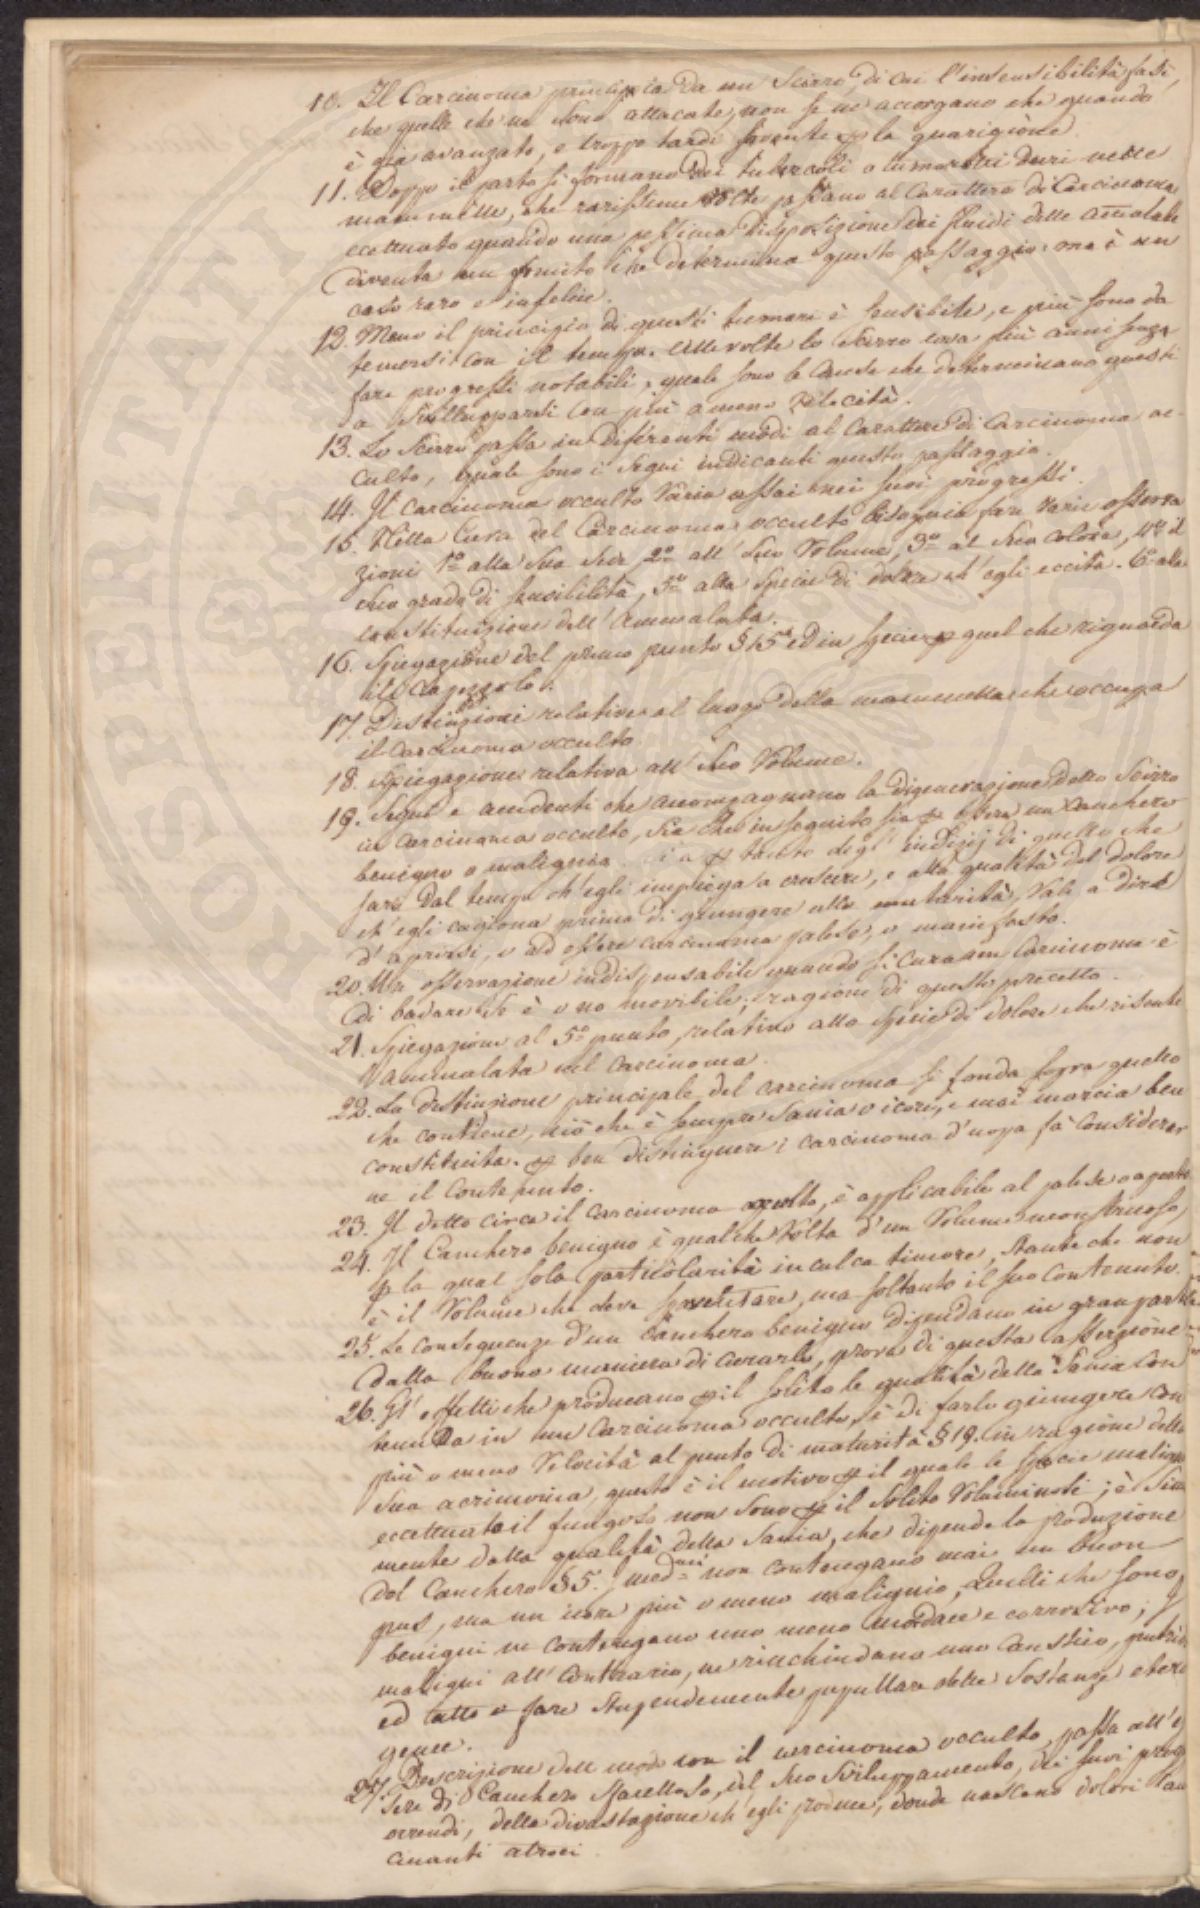 10. Il Carcinoma principia da un Scirro, di cui l'insensibilità fa sì,
che quelle che ne sono attacate, non se ne accorgano che quando
è già avanzato, e troppo tardi sovente p la guarigione.
11. Doppo il parto si formano dei tubercoli o tumoretti duri nelle
mammelle, che rarissime volte passano al Carattere di Carcinoma
eccettuato quando una pessima disposizione dei fluidi delle amalate
diventa un fomite che determina questo passaggio: ma è un
caso raro e infelice.
12. Meno il principio di questi tumori è sensibile, e più sono da
temersi con il tempo. Alle volte lo scirro cova più anni senza
fare progressi notabili, quale sono le cause che determinano questi
a svillupparsi con più o meno velocità.
13. Lo Scirro passa in diferenti modi al Carattere di Carcinoma oc-
culto, quale sono i segni indicanti questo passaggio.
14. Il carcinoma occulto varia assai nei suoi progressi.
15. Nella Cura del Carcinoma occulto bisogna fare varie osserva
zioni 1º alla sua sede, 2º all' suo Volume, 3º al suo colore, 4º il
suo grado di sensibilità, 5º alla specie di dolore ch' egli eccita. 6º alla
constituzione dell' ammalata.
16. Spiegazione del primo punto § 15 ed in specie p quel che riguarda
il capezzolo.
17. Distinzioni relative al luogo della mammella che occupa
il carcinoma occulto.
18. Spiegazione relativa all' suo Volume.
19. Segni e accidenti che accompagnano la digenerazione dello Scirro
in carcinoma occulto, sia che in seguito sia p essere un canchero
benigno o maligno. p tanto degl' indizij di quello che
sarà dal tempo ch' egli impiega a crescere, e alla qualità del dolore
ch' egli cagiona prima di giungere alla maturità, Vale a dire
d' aprirsi, o ad essere carcinoma palese, o manifesto.
20. Un osservazione indispensabile quando si cura un Carcinoma è
di badare se è o no movibile; ragione di questo precetto.
21. Spiegazione al 5º punto, relativo alla specie di dolore che risente
l'ammalata nel carcinoma.
22. La distinzione principale del carcinoma si fonda sopra quello
che contiene, ciò che è sempre sania o icore, e mai marcia ben
constituita. p ben distinguere i carcinoma d'uopa fà considerar
ne il contenuto.
23. Il detto circa il carcinoma occulto, è applicabile al palese o aperto
24. Il Canchero benigno è qualche volta d'un Volume monstruoso,
p la qual sola particolarità inculca timore, stante che non
è il Volume che deve spaventare, ma soltanto il suo contenuto.
25. Le conseguenze d'un Canchero benigno dipendano in gran parte
dalla buona maniera di curarlo, prova di questa asserzione
26. Gl' effetti che producano p il solito le qualità della Sania con
tenuta in un Carcinoma occulto, è di farlo giungere con
più o meno Velocità al punto di maturità § 19. in ragione della
sua acrimonia, questo è il motivo p il quale le specie maligne
eccettuato il fungoso non sono p il solito Voluminosi; è
mente dalla qualità della Sania, che dipende la produzione
del Canchero § 5. non contengano mai un buon
pus, ma un icore più o meno maligno, Quelli che sono
benigni ne contengano uno meno mordace e corrosivo, i
maligni all' contrario, ne rinchiudano uno caustico, putrido
ed atto a fare stupendemente pupullare delle Sostanze etero
genee.
27. Descrizione dell modo con il carcinoma occulto, passa all' es
sere di Canchero, del suo sviluppamento, dei suoi prog
orrendi, della divastazione ch' egli produce, donde nascono dolori lan
cinanti atroci.